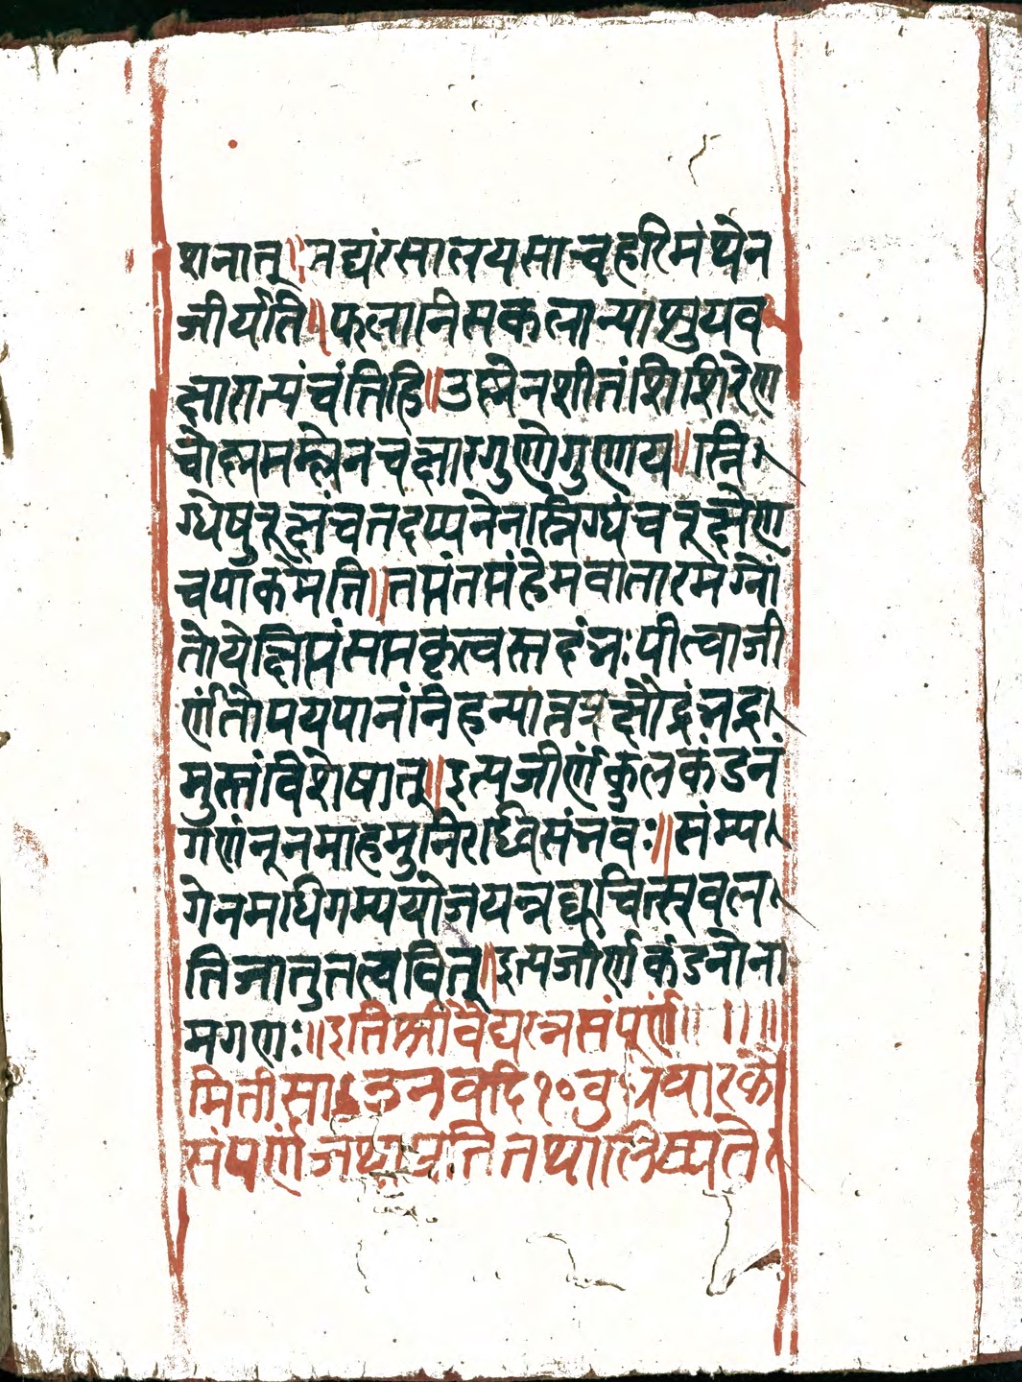 शनात्॥मद्यंरसालयसाचहरिमंथेन
जीर्यति॥फलानिसकलान्याशुयव
क्षारात्पचंतिहि॥उष्णेनशीतंशिशिरेण
चोष्णमम्लेनचक्षारगुणोगुणाय॥स्नि
ग्धेषुरूक्षंचतदप्यनेनस्निग्धंचरूक्षेण
चपाकमेति॥तप्तंतप्तंहेमवातारमग्नौ
तोयेक्षिप्तंसप्तकृत्वस्तदंभः पीत्वाजी
र्णंतोयपानंनिहन्यात्तत्रक्षौद्रंभद्र
मुस्तंविशेषात्॥इत्यजीर्णकुलकंडनं
गणंनूनमाहमुनिराध्विसंनवः॥संम्प
गेनमधिगम्ययोजयन्नद्यचित्स्खल
तिजातुतत्त्ववित्॥इत्यजीर्णकंडनोना
मगणः॥इतिश्रीवैद्यरत्नसंपूर्णं॥
मितीसा वदि१०वु वारके
संपूर्ण जथाप्रतितथालिख्यते